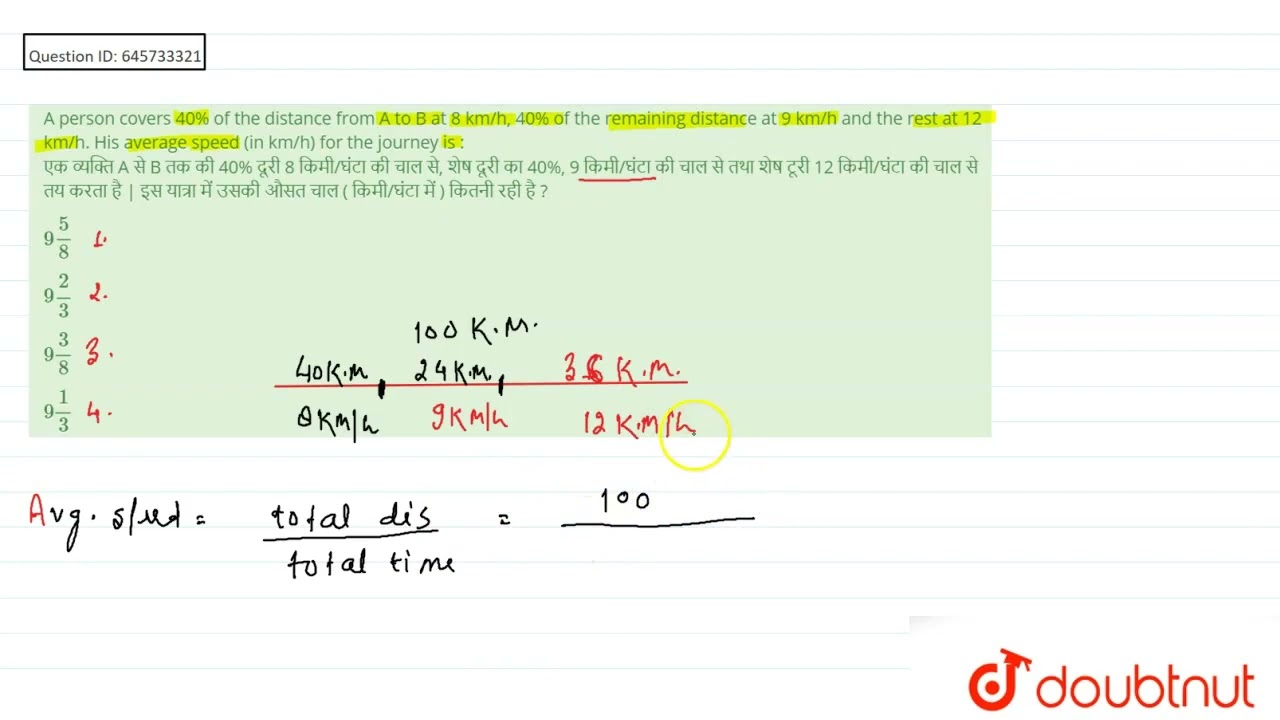 Question ID: 645733321
A person covers 40% of the distance from A to B at 8 km/h, 40% of the remaining distance at 9 km/h and the rest at 12
km/h. His average speed (in km/h) for the journey is :
एक व्यक्ति A से B तक की 40% दूरी 8 किमी/घंटा की चाल से, शेष दूरी का 40%, 9 किमी/घंटा की चाल से तथा शेष टूरी 12 किमी/घंटा की चाल से
तय करता है | इस यात्रा में उसकी औसत चाल ( किमी/घंटा में ) कितनी रही है ?
9 5/8 1.
9 2/3 2.
9 3/8 3.
9 1/3 4.
100 K.M.
40K.M 24K.M. 36 K.M.
8KM/h 9KM/h 12 K.M/h
Avg. speed = total dis / total time = 100
doubtnut